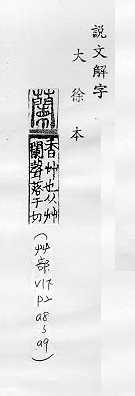 說文解字
大徐本
蘭
香艸也从艸
闌聲落干切
(艸部
V1下
P2
a8
s
a9)